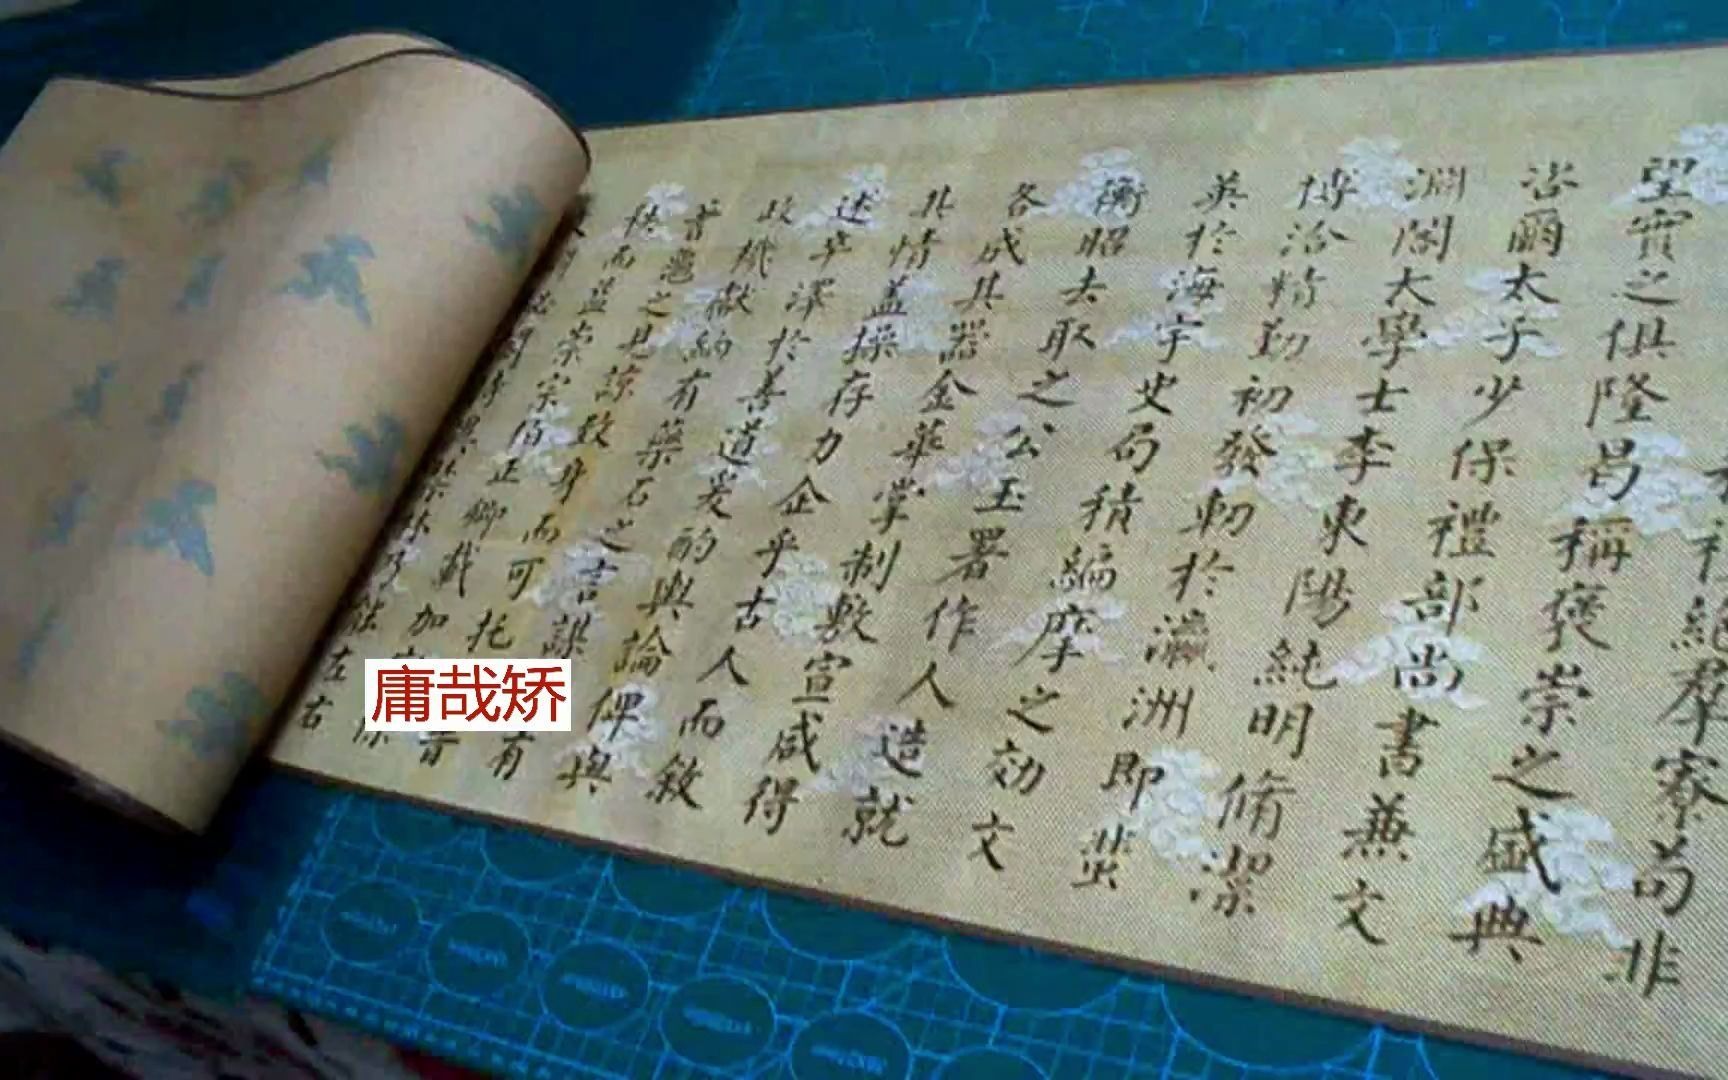 絕羣寮苟非
望實之俱隆曷稱褒崇之盛典
咨爾太子少保禮部尚書兼文
淵閣大學士李東陽純明脩潔
博洽精勤初發軔於瀛洲即蜚
英於海宇史局積編摩之効文
衡昭去取之公玉署作人造就
各成其器金華掌制敷宣咸得
其情蓋操存力企乎古人而敘
述卒澤於善道爰酌輿論俾與
政機獻納有藥石之言謀
普鬯之見諒致身而可托有
秩而益崇宗伯正卿載加
左右
庸哉矫